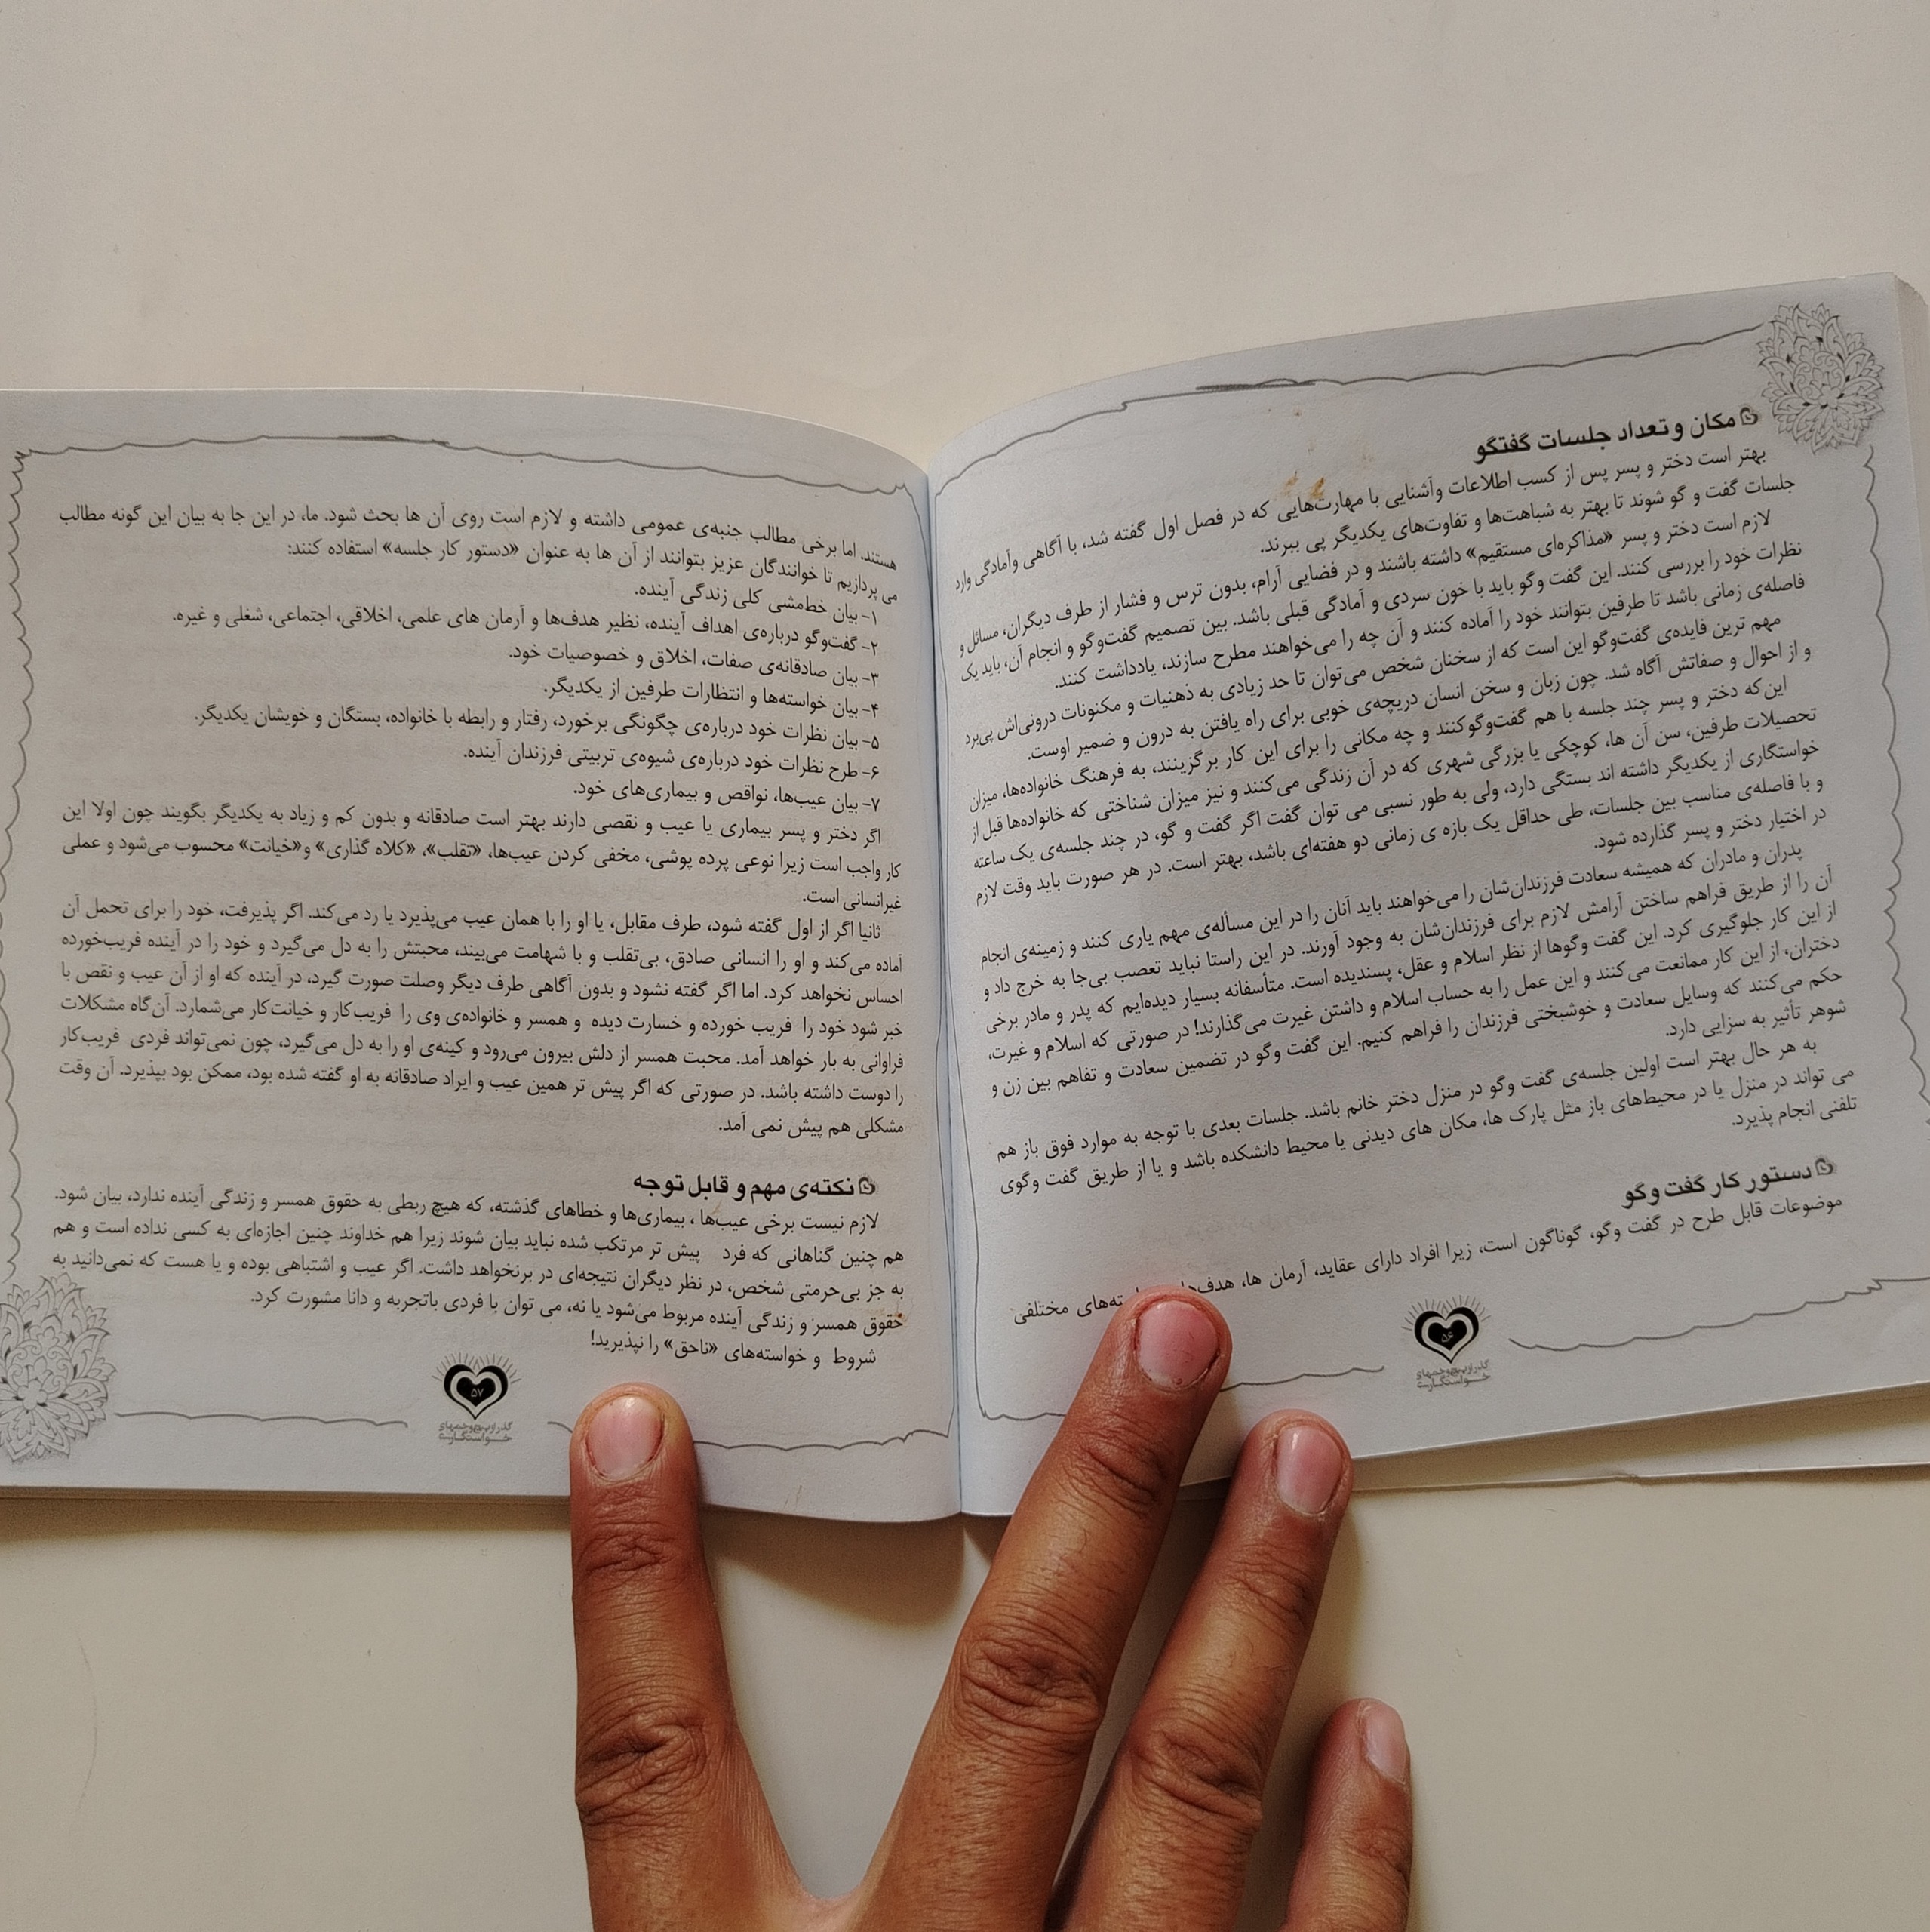 مکان و تعداد جلسات گفتگو
بهتر است دختر و پسر پس از کسب اطلاعات وآشنایی با مهارت‌هایی که در فصل اول گفته شد، با آگاهی وآمادگی وارد
جلسات گفت و گو شوند تا بهتر به شباهت‌ها و تفاوت‌های یکدیگر پی ببرند.
لازم است دختر و پسر «مذاکره‌ای مستقیم» داشته باشند و در فضایی آرام، بدون ترس و فشار از طرف دیگران، مسائل و
نظرات خود را بررسی کنند. این گفت وگو باید با خون سردی و آمادگی قبلی باشد. بین تصمیم گفت‌وگو و انجام آن، باید یک
فاصله‌ی زمانی باشد تا طرفین بتوانند خود را آماده کنند و آن چه را می‌خواهند مطرح سازند، یادداشت کنند.
مهم ترین فایده‌ی گفت‌وگو این است که از سخنان شخص می‌توان تا حد زیادی به ذهنیات و مکنونات درونی‌اش پی‌برد
و از احوال و صفاتش آگاه شد. چون زبان و سخن انسان دریچه‌ی خوبی برای راه یافتن به درون و ضمیر اوست.
این‌که دختر و پسر چند جلسه با هم گفت‌وگوکنند و چه مکانی را برای این کار برگزینند، به فرهنگ خانواده‌ها، میزان
تحصیلات طرفین، سن آن ها، کوچکی یا بزرگی شهری که در آن زندگی می‌کنند و نیز میزان شناختی که خانواده‌ها قبل از
خواستگاری از یکدیگر داشته اند بستگی دارد، ولی به طور نسبی می توان گفت اگر گفت و گو، در چند جلسه‌ی یک ساعته
و با فاصله‌ی مناسب بین جلسات، طی حداقل یک بازه ی زمانی دو هفته‌ای باشد، بهتر است. در هر صورت باید وقت لازم
در اختیار دختر و پسر گذارده شود.
پدران و مادران که همیشه سعادت فرزندان‌شان را می‌خواهند باید آنان را در این مسأله‌ی مهم یاری کنند و زمینه‌ی انجام
آن را از طریق فراهم ساختن آرامش لازم برای فرزندان‌شان به وجود آورند. در این راستا نباید تعصب بی‌جا به خرج داد و
از این کار جلوگیری کرد. این گفت وگوها از نظر اسلام و عقل، پسندیده است. متأسفانه بسیار دیده‌ایم که پدر و مادر برخی
دختران، از این کار ممانعت می‌کنند و این عمل را به حساب اسلام و داشتن غیرت می‌گذارند! در صورتی که اسلام و غیرت،
حکم می‌کنند که وسایل سعادت و خوشبختی فرزندان را فراهم کنیم. این گفت وگو در تضمین سعادت و تفاهم بین زن و
شوهر تأثیر به سزایی دارد.
به هر حال بهتر است اولین جلسه‌ی گفت وگو در منزل دختر خانم باشد. جلسات بعدی با توجه به موارد فوق باز هم
می تواند در منزل یا در محیط‌های باز مثل پارک ها، مکان های دیدنی یا محیط دانشکده باشد و یا از طریق گفت وگوی
تلفنی انجام پذیرد.
دستور کار گفت وگو
موضوعات قابل طرح در گفت وگو، گوناگون است، زیرا افراد دارای عقاید، آرمان ها، مختلفی
۵۶
گذر از پیچ و خمهای
خواستگاری
هستند. اما برخی مطالب جنبه‌ی عمومی داشته و لازم است روی آن ها بحث شود. ما، در این جا به بیان این گونه مطالب
می پردازیم تا خوانندگان عزیز بتوانند از آن ها به عنوان «دستور کار جلسه» استفاده کنند:
۱- بیان خط‌مشی کلی زندگی آینده.
۲- گفت‌وگو درباره‌ی اهداف آینده، نظیر هدف‌ها و آرمان های علمی، اخلاقی، اجتماعی، شغلی و غیره.
۳- بیان صادقانه‌ی صفات، اخلاق و خصوصیات خود.
۴- بیان خواسته‌ها و انتظارات طرفین از یکدیگر.
۵- بیان نظرات خود درباره‌ی چگونگی برخورد، رفتار و رابطه با خانواده، بستگان و خویشان یکدیگر.
۶- طرح نظرات خود درباره‌ی شیوه‌ی تربیتی فرزندان آینده.
۷- بیان عیب‌ها، نواقص و بیماری‌های خود.
اگر دختر و پسر بیماری یا عیب و نقصی دارند بهتر است صادقانه و بدون کم و زیاد به یکدیگر بگویند چون اولا این
کار واجب است زیرا نوعی پرده پوشی، مخفی کردن عیب‌ها، «تقلب»، «کلاه گذاری» و«خیانت» محسوب می‌شود و عملی
غیرانسانی است.
ثانیا اگر از اول گفته شود، طرف مقابل، یا او را با همان عیب می‌پذیرد یا رد می‌کند. اگر پذیرفت، خود را برای تحمل آن
آماده می‌کند و او را انسانی صادق، بی‌تقلب و با شهامت می‌بیند، محبتش را به دل می‌گیرد و خود را در آینده فریب‌خورده
احساس نخواهد کرد. اما اگر گفته نشود و بدون آگاهی طرف دیگر وصلت صورت گیرد، در آینده که او از آن عیب و نقص با
خبر شود خود را فریب خورده و خسارت دیده و همسر و خانواده‌ی وی را فریب‌کار و خیانت‌کار می‌شمارد. آن‌گاه مشکلات
فراوانی به بار خواهد آمد. محبت همسر از دلش بیرون می‌رود و کینه‌ی او را به دل می‌گیرد، چون نمی‌تواند فردی فریب‌کار
را دوست داشته باشد. در صورتی که اگر پیش تر همین عیب و ایراد صادقانه به او گفته شده بود، ممکن بود بپذیرد. آن وقت
مشکلی هم پیش نمی آمد.
نکته‌ی مهم و قابل توجه
لازم نیست برخی عیب‌ها ، بیماری‌ها و خطاهای گذشته، که هیچ ربطی به حقوق همسر و زندگی آینده ندارد، بیان شود.
هم چنین گناهانی که فرد پیش تر مرتکب شده نباید بیان شوند زیرا هم خداوند چنین اجازه‌ای به کسی نداده است و هم
به جز بی‌حرمتی شخص، در نظر دیگران نتیجه‌ای در برنخواهد داشت. اگر عیب و اشتباهی بوده و یا هست که نمی‌دانید به
حقوق همسر و زندگی آینده مربوط می‌شود یا نه، می توان با فردی باتجربه و دانا مشورت کرد.
شروط و خواسته‌های «ناحق» را نپذیرید!
۵۷
گذر از پیچ و خمهای
خواستگاری